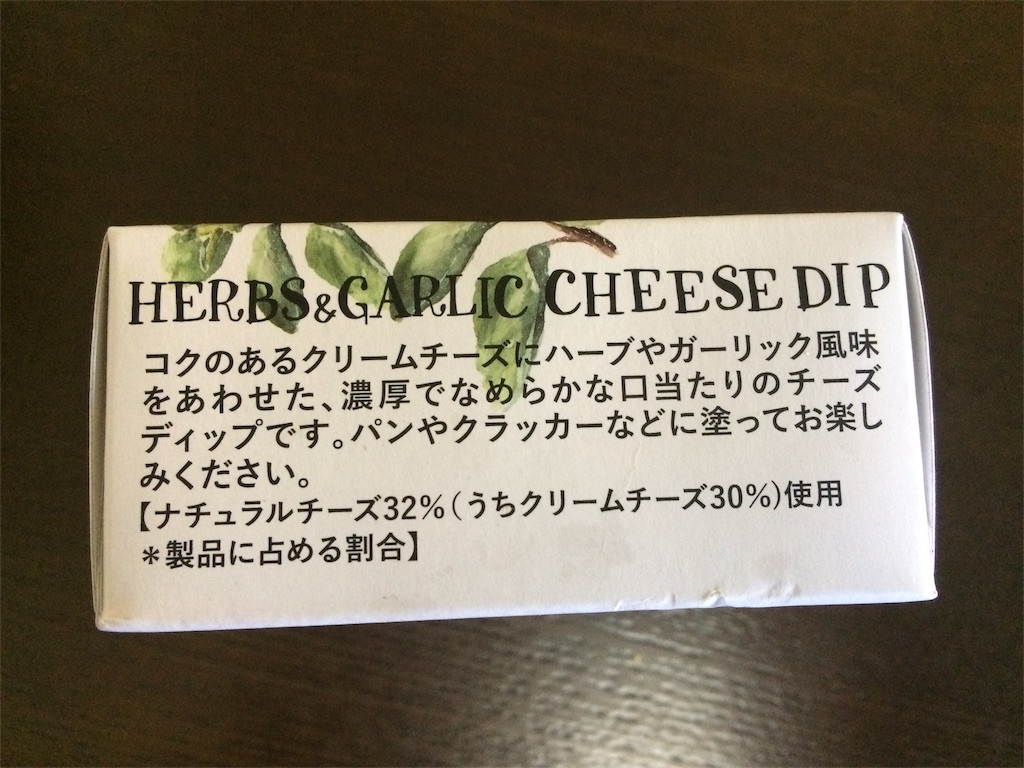 HERBS&GARLIC CHEESE DIP
コクのあるクリームチーズにハーブやガーリック風味
をあわせた、濃厚でなめらかな口当たりのチーズ
ディップです。パンやクラッカーなどに塗ってお楽し
みください。
【ナチュラルチーズ32%(うちクリームチーズ30%)使用
＊製品に占める割合】